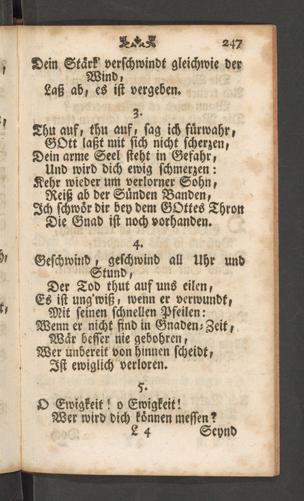 247
Dein Stärk verschwindt gleichwie der
Wind,
Laß ab, es ist vergeben.
3.
Thu auf, thu auf, sag ich fürwahr,
GOtt laßt mit sich nicht scherzen,
Dein arme Seel steht in Gefahr,
Und wird dich ewig schmerzen:
Kehr wieder um verlorner Sohn,
Reiß ab der Sünden Banden,
Ich schwör dir bey dem GOttes Thron
Die Gnad ist noch vorhanden.
4.
Geschwind, geschwind all Uhr und
Stund,
Der Tod thut auf uns eilen,
Es ist ung'wiß, wenn er verwundt,
Mit seinen schnellen Pfeilen:
Wenn er nicht find in Gnaden-Zeit,
Wär besser nie gebohren,
Wer unbereit von hinnen scheidt,
Ist ewiglich verloren.
5.
O Ewigkeit! o Ewigkeit!
Wer wird dich können messen?
L 4 Seynd